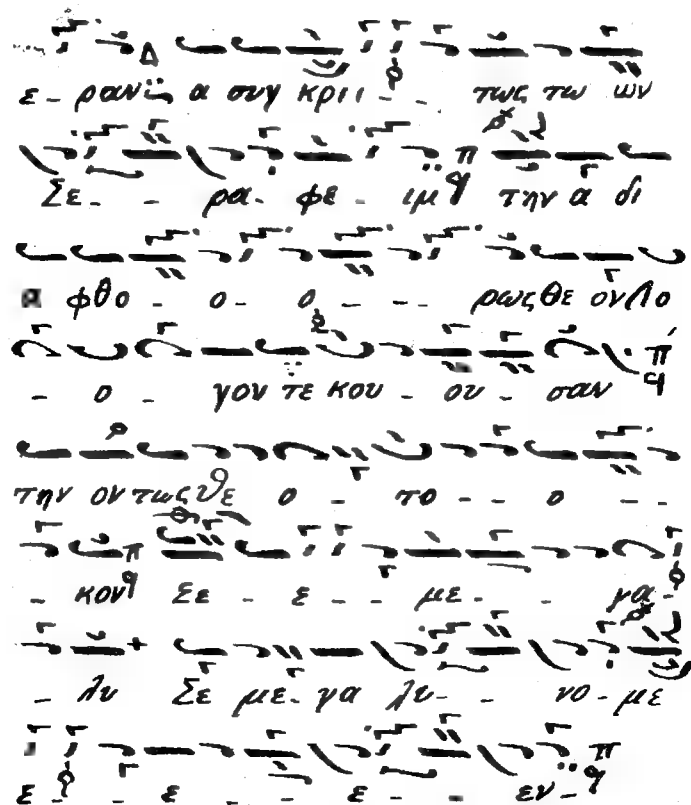 ε - ραν α συγ κριι - - - τως τω ων
Σε - - ρα - φε - ιμ την α δι
α φθο - ο - ο - - - ρως θε ον Λο
- ο - γον τε κου - ου - σαν
την ον τως θε ο - το - - ο - -
- κον Σε - ε - - με - - - γα -
- λυ Σε με - γα λυ - - νο - με
ε - - ε - - ε - - εν -